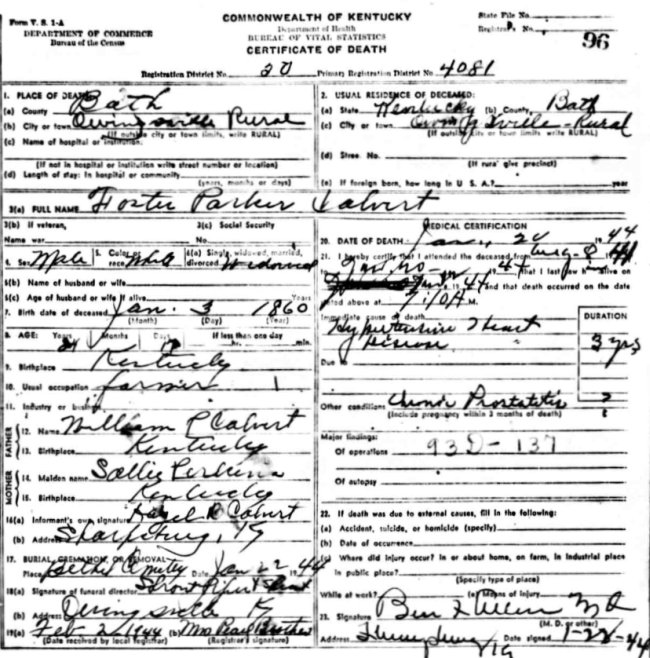 Form V. S. 1-A
DEPARTMENT OF COMMERCE
Bureau of the Census
COMMONWEALTH OF KENTUCKY
Department of Health
BUREAU OF VITAL STATISTICS
CERTIFICATE OF DEATH
State File No.
Registrar's No. 96
Registration District No. 20 Primary Registration District No. 4081
1. PLACE OF DEATH
(a) County Bath
(b) City or town Owingsville Rural
(If outside city or town limits, write RURAL)
(c) Name of hospital or institution:
(If not in hospital or institution write street number or location)
(d) Length of stay: In hospital or community
(years, months or days)
2. USUAL RESIDENCE OF DECEASED:
(a) State Kentucky (b) County Bath
(c) City or town Owingsville - Rural
(If outside city or town limits, write RURAL)
(d) Stree. No.
(If rural give precinct)
(e) If foreign born, how long in U. S. A.? year
3(a) FULL NAME Foster Parker Calvert
3(b) If veteran,
Name war
3(c) Social Security
No.
4. Sex Male 5. Color or race White 6(a) Single, widowed, married, divorced Widowed
6(b) Name of husband or wife
6(c) Age of husband or wife if alive Years
7. Birth date of deceased Jan. 3 1860
(Month) (Day) (Year)
8. AGE: Years 84 Months Days If less than one day
min.
9. Birthplace Kentucky
10. Usual occupation farmer
11. Industry or business
FATHER
12. Name William P Calvert
13. Birthplace Kentucky
MOTHER
14. Maiden name Sallie Perkins
15. Birthplace Kentucky
16(a) Informant's own signature Hazel R Calvert
(b) Address Sharpsburg, Ky
17. BURIAL, CREMATION, OR REMOVAL
Place Date Jan 22 1944
18(a) Signature of funeral director
(b) Address Owingsville Ky
19(a) Feb. 2 1944 (b) Mrs Pearl Brother
(Date received by local registrar) (Registrar's signature)
MEDICAL CERTIFICATION
20. DATE OF DEATH Jan. 20 1944
21. I hereby certify that I attended the deceased from Aug 8
that I last saw h alive on
and that death occurred on the date
stated above at 7:10A M.
Immediate cause of death
Hypertensive Heart
Disease
DURATION
3 yrs
Due to
Other conditions Chronic Prostatitis ?
(Include pregnancy within 3 months of death)
Major findings:
Of operations 93D-137
Of autopsy
22. If death was due to external causes, fill in the following:
(a) Accident, suicide, or homicide (specify)
(b) Date of occurrence
(c) Where did injury occur? In or about home, on farm, in industrial place
In public place?
(Specify type of place)
While at work? (e) Means of injury
23. Signature Ben F Allen MD
(M. D. or other)
Address Ky Date signed 1-22-44